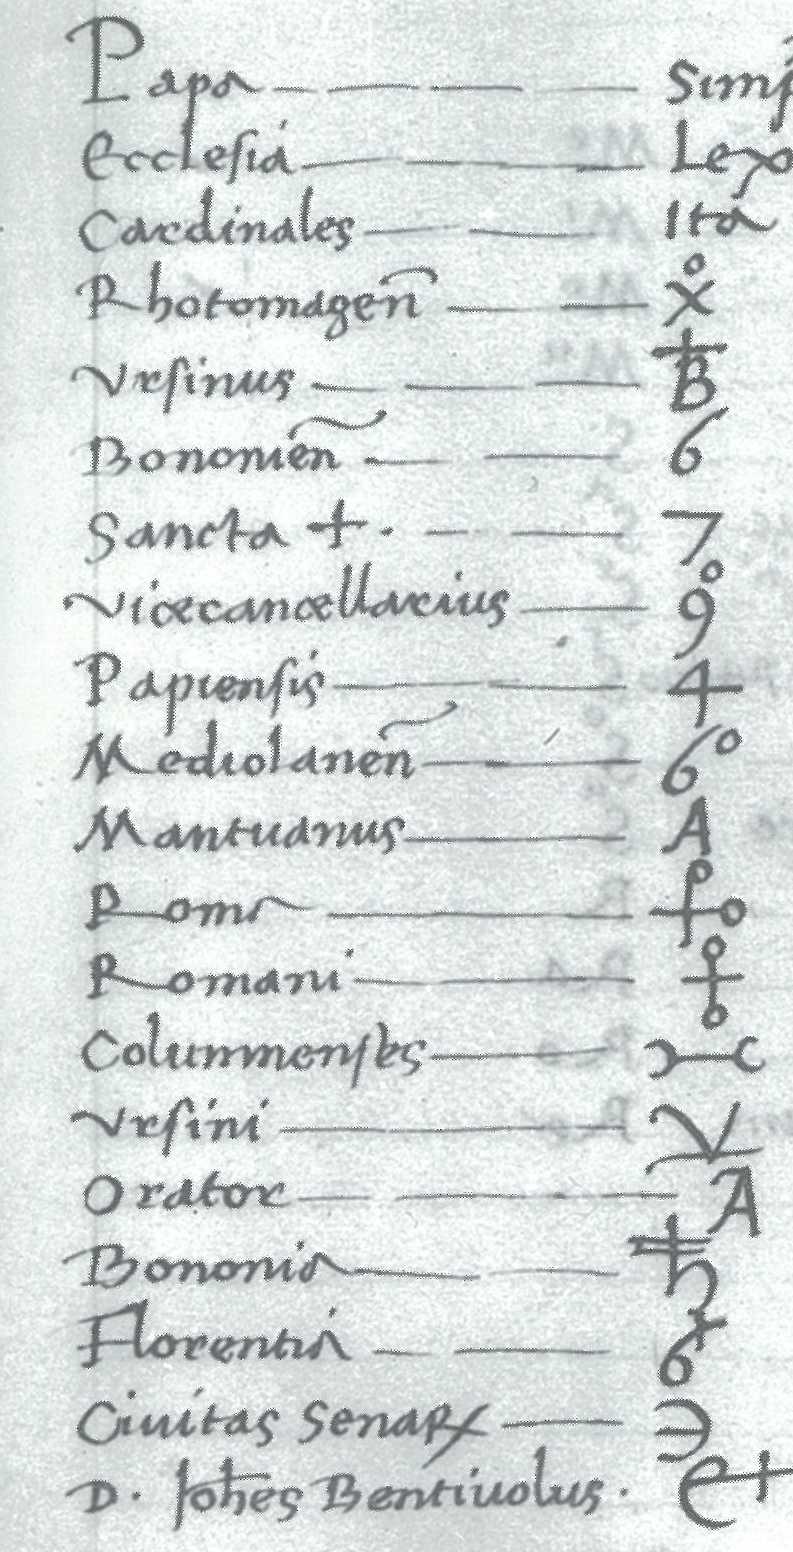 Papa
Ecclesia Lex
Cardinales Ita
Rhotomageñ
Vrsinus B
Bononieñ 6
Sancta +. 7
Vicecancellarius
Papiensis 4
Mediolaneñ 6º
Mantuanus A
Roma
Romani
Columnenses
Vrsini V
Orator A
Bononia
Florentia
Ciuitas Senaꝝ
D. Johes Bentiuolus.